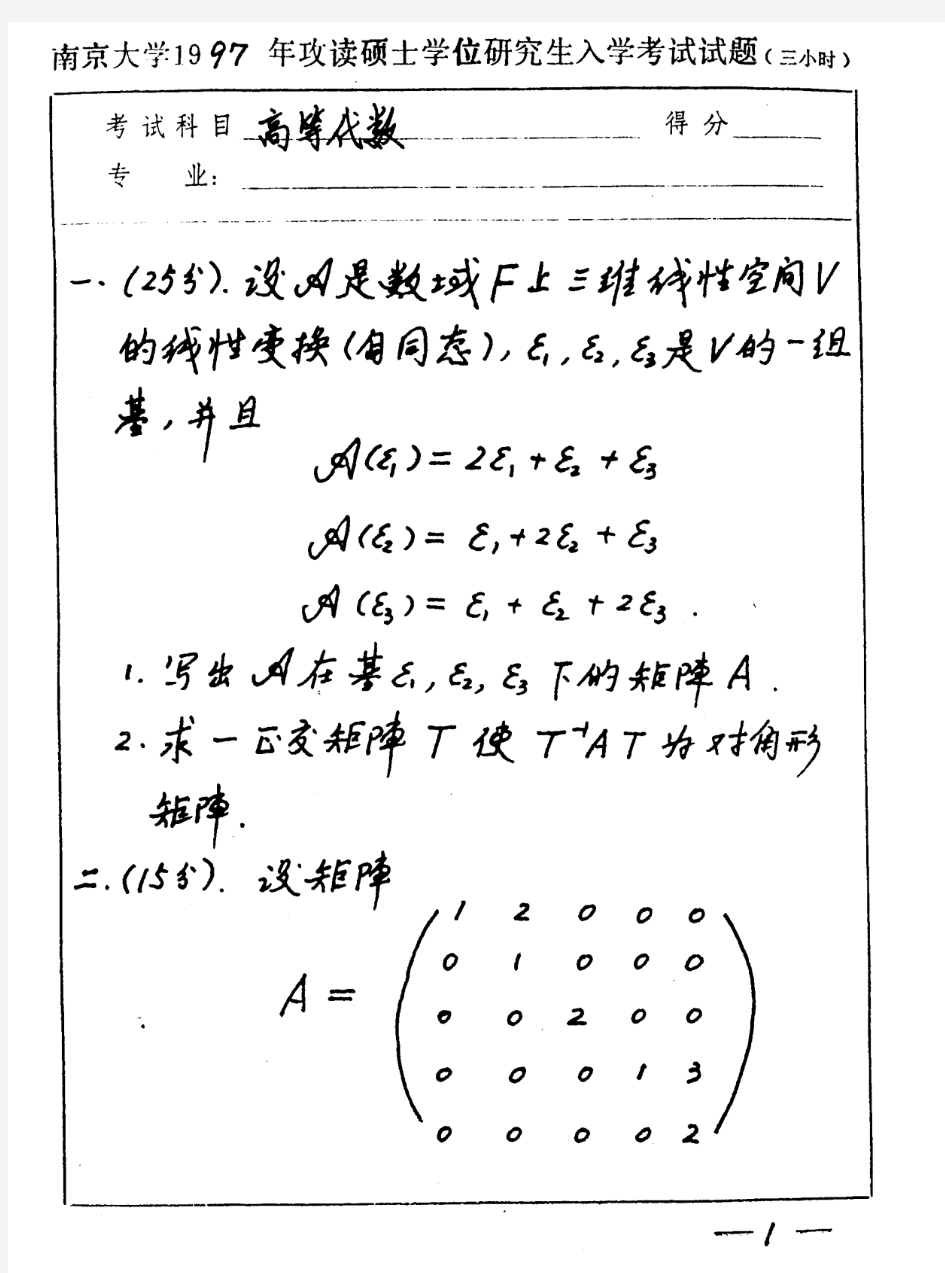 南京大学1997 年攻读硕士学位研究生入学考试试题(三小时)
考试科目 高等代数 得分
专 业:
一.(25分).设𝒜是数域F上三维线性空间V
的线性变换(自同态),ε₁,ε₂,ε₃是V的一组
基,并且
𝒜(ε₁)=2ε₁+ε₂+ε₃
𝒜(ε₂)=ε₁+2ε₂+ε₃
𝒜(ε₃)=ε₁+ε₂+2ε₃.
1.写出𝒜在基ε₁,ε₂,ε₃下的矩阵A.
2.求一正交矩阵T使T⁻¹AT为对角形
矩阵.
二.(15分).设矩阵
1 2 0 0 0
0 1 0 0 0
A= 0 0 2 0 0
0 0 0 1 3
0 0 0 0 2
—1—